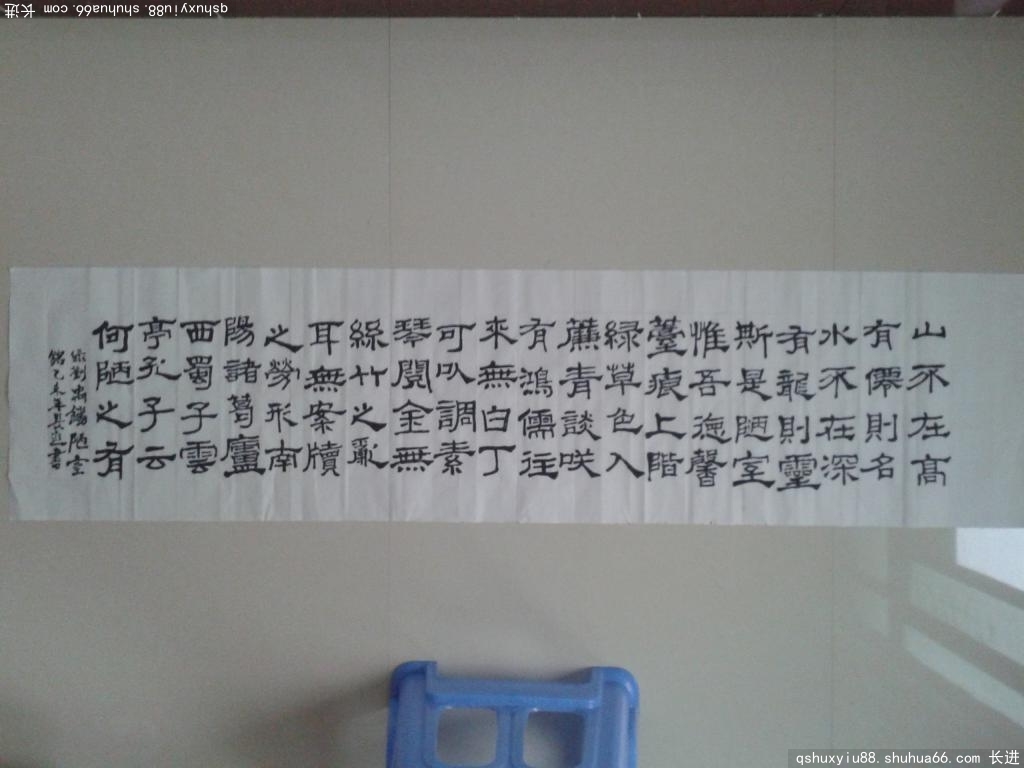 山不在高
有僊則名
水不在深
有龍則靈
斯是陋室
惟吾德馨
薹痕上階
緑草色入
薕青談咲
有鴻儒往
來無白丁
可以調素
琴閱金無
絲竹之亂
耳無案牘
之勞形南
陽諸葛廬
西蜀子雲
亭孔子云
何陋之有
劉禹錫陋室
銘乙未年長進書
qshuxyiu88.shuhua66.com 长进
qshuxyiu88.shuhua66.com 长进